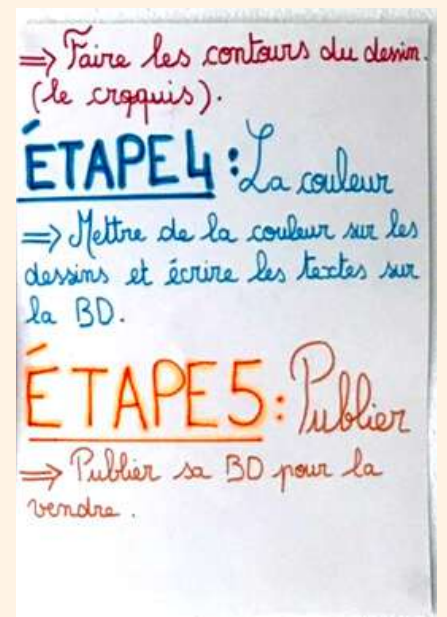 => Faire les contours du dessin.
(le croquis).
ÉTAPE 4 : La couleur
=> Mettre de la couleur sur les
dessins et écrire les textes sur
la BD.
ÉTAPE 5 : Publier
=> Publier sa BD pour la
vendre.